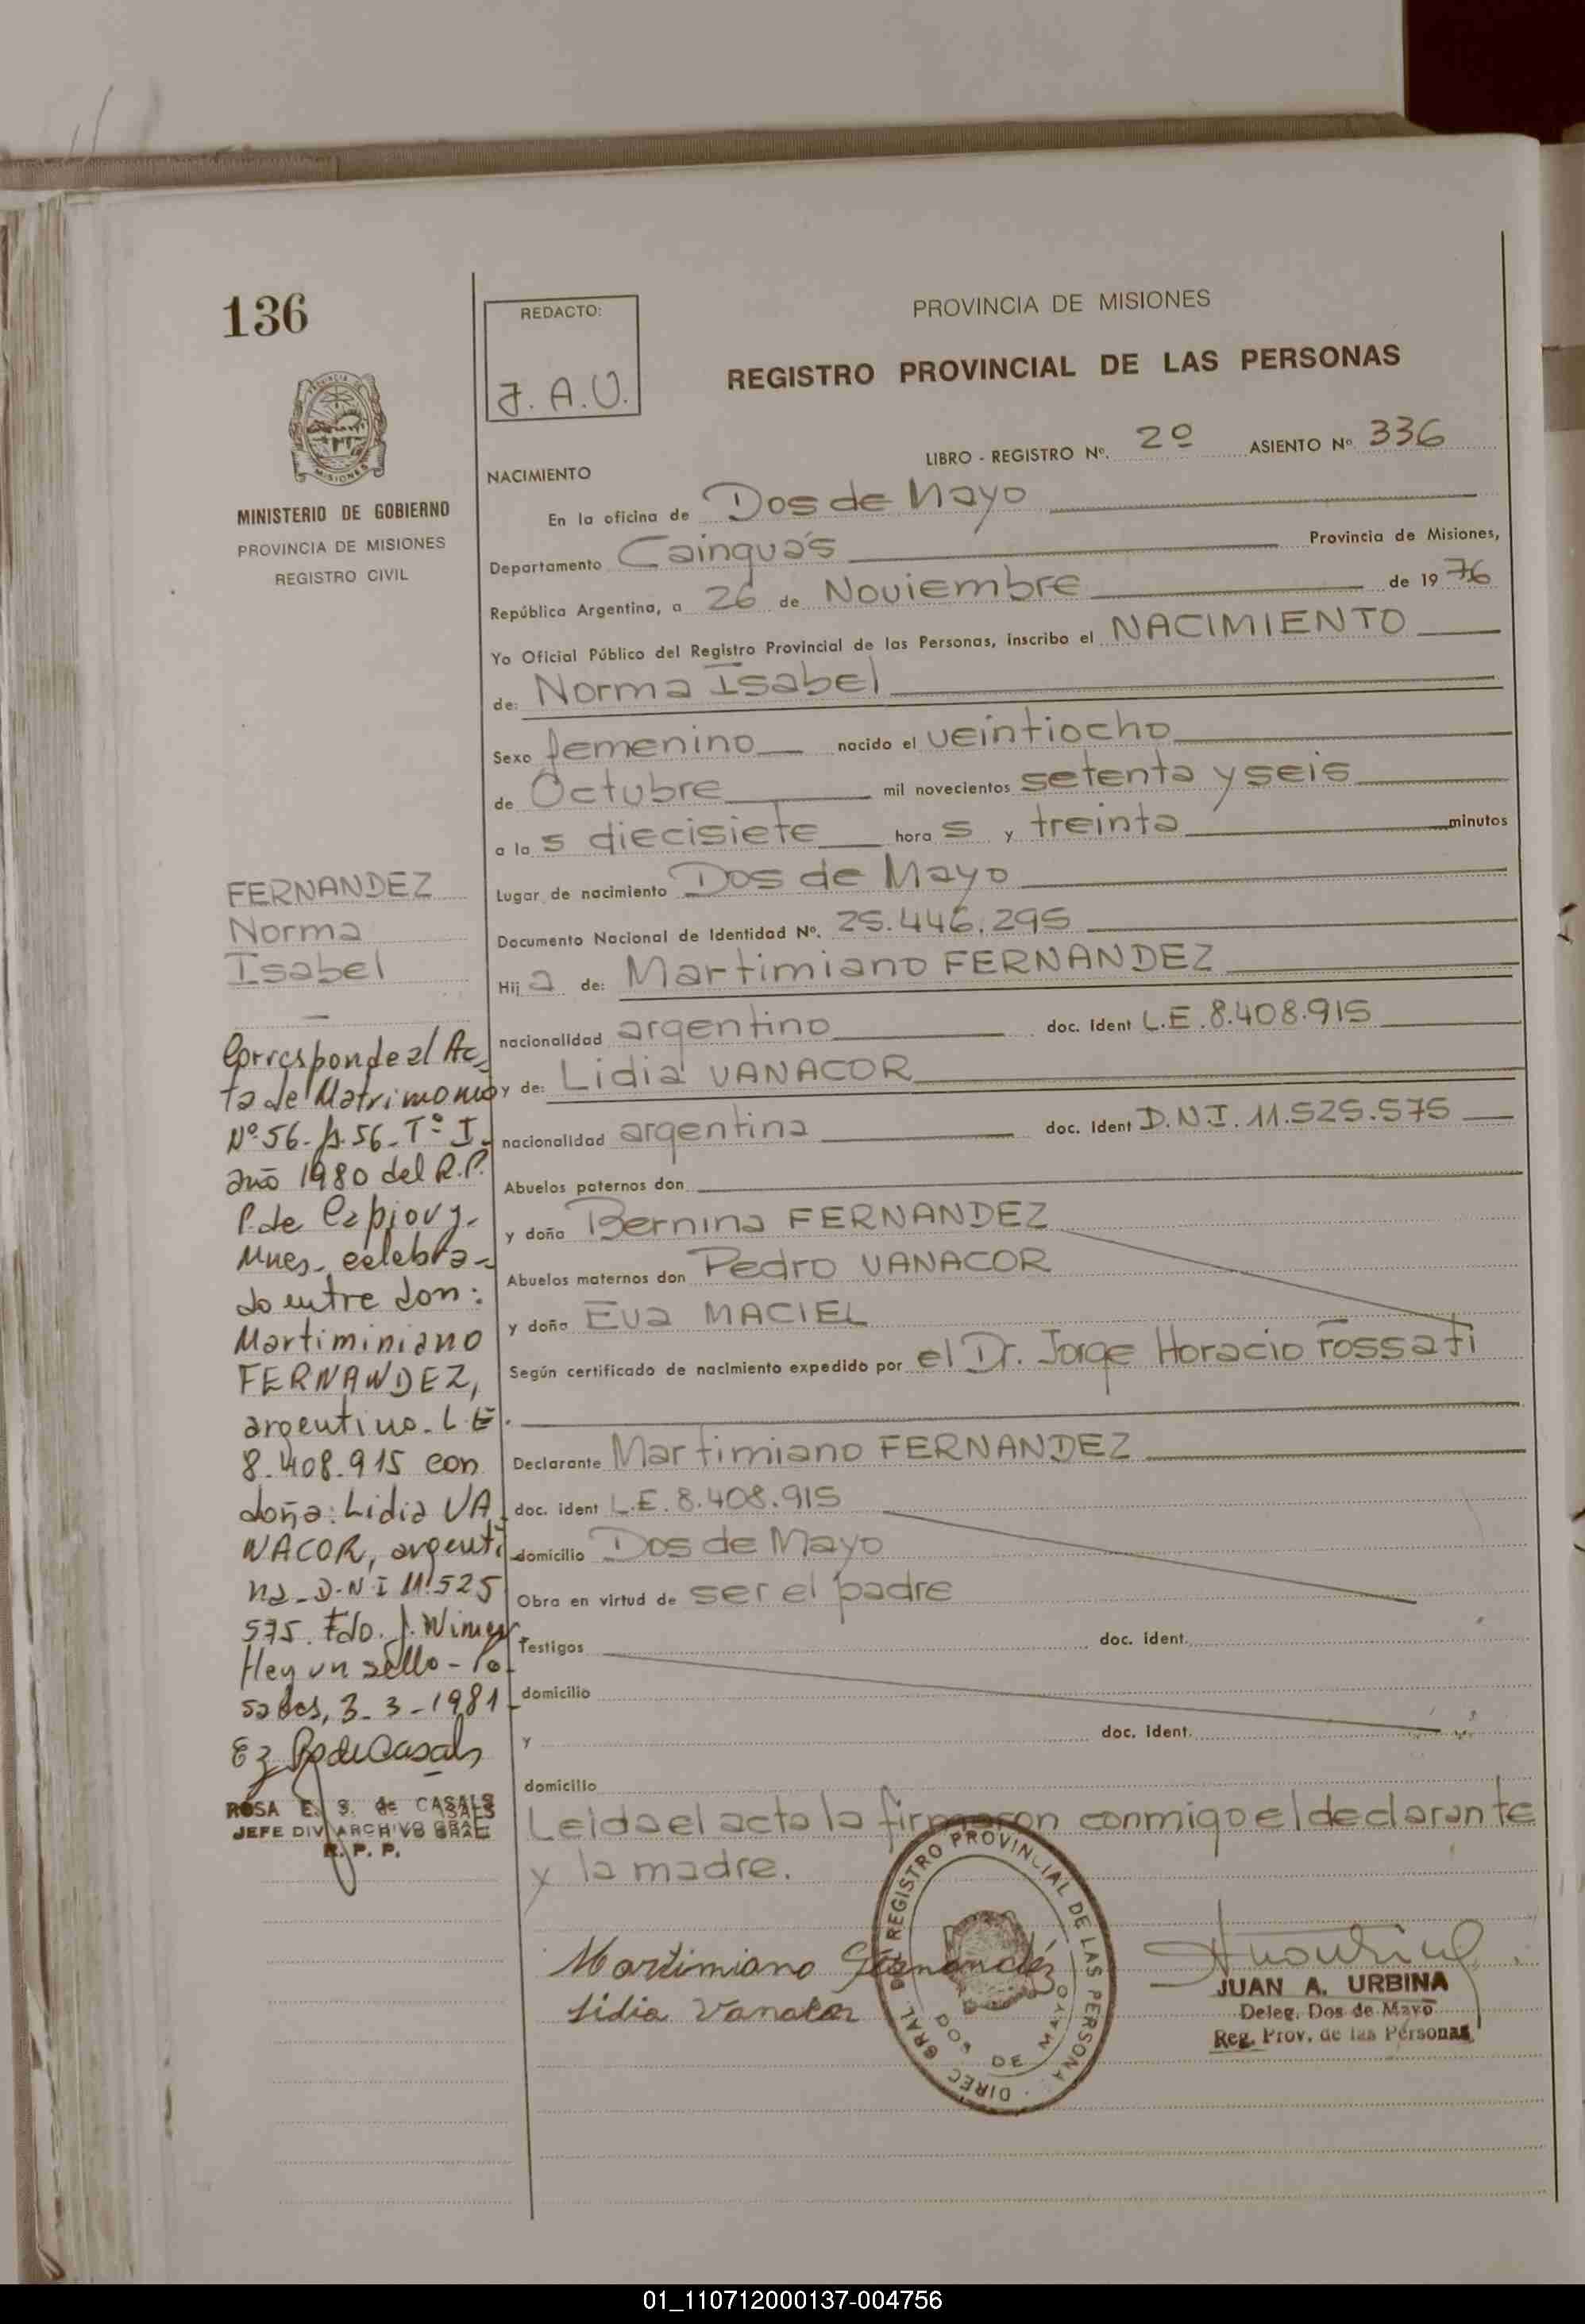 136
MINISTERIO DE GOBIERNO
PROVINCIA DE MISIONES
REGISTRO CIVIL
REDACTO:
J. A. U.
PROVINCIA DE MISIONES
REGISTRO PROVINCIAL DE LAS PERSONAS
LIBRO - REGISTRO Nº. 2º ASIENTO Nº 336
NACIMIENTO
En la oficina de Dos de Mayo
Departamento Cainguás Provincia de Misiones,
República Argentina, a 26 de Noviembre de 1976
Yo Oficial Público del Registro Provincial de las Personas, inscribo el NACIMIENTO
de: Norma Isabel
Sexo femenino nacido el veintiocho
de Octubre mil novecientos setenta y seis
a las diecisiete horas y treinta minutos
Lugar de nacimiento Dos de Mayo
Documento Nacional de Identidad Nº. 25.446.295
Hija de: Martimiano FERNANDEZ
nacionalidad argentino doc. Ident L.E. 8.408.915
y de: Lidia VANACOR
nacionalidad argentina doc. Ident D.N.I. 11.525.575
Abuelos paternos don
y doña Bernina FERNANDEZ
Abuelos maternos don Pedro VANACOR
y doña Eva MACIEL
Según certificado de nacimiento expedido por el Dr. Jorge Horacio Fossati
Declarante Martimiano FERNANDEZ
doc. ident L.E. 8.408.915
domicilio Dos de Mayo
Obra en virtud de ser el padre
Testigos doc. ident.
domicilio
y doc. ident.
domicilio
Leida el acta la firmaron conmigo el declarante
y la madre.
Martimiano Fernandez
Lidia Vanacor
DIREC. GRAL. DE REGISTRO PROVINCIAL DE LAS PERSONA
DOS DE MAYO
JUAN A. URBINA
Deleg. Dos de Mayo
Reg. Prov. de las Personas
FERNANDEZ
Norma
Isabel
Corresponde al Ac-
ta de Matrimonio
Nº 56. fs. 56. Tº I.
año 1980 del R.P.
P. de Capiovy.
Mnes. celebra-
do entre don:
Martiminiano
FERNANDEZ,
argentino. L.E.
8.408.915 con
doña: Lidia VA
NACOR, argenti
na. D.N.I 11.525
575. Fdo. J.
Hay un sello - Po-
sadas, 3-3-1981
ROSA E. S. de CASALS
JEFE DIV ARCHIVO GRAL
R. P. P.
01_110712000137-004756